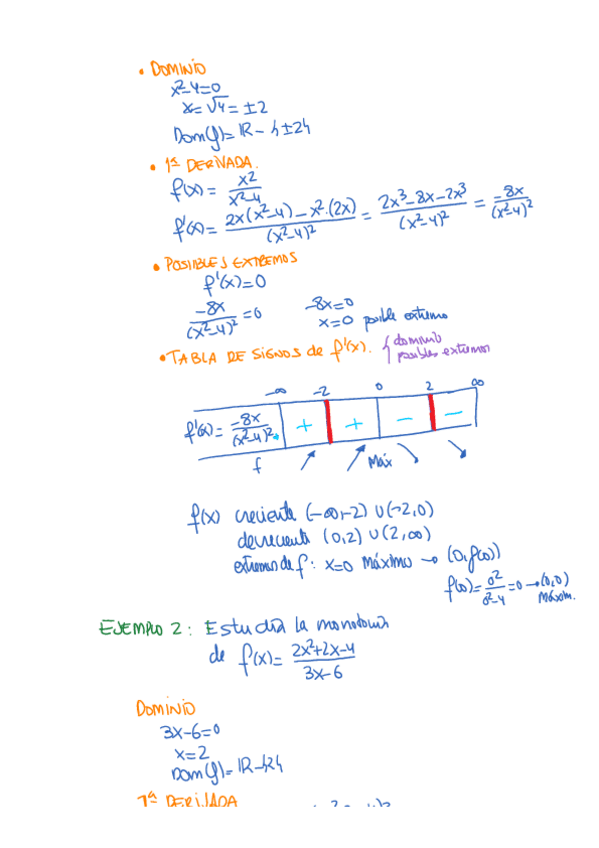 • DOMINIO
x²-4=0
x=√4=±2
Dom(f)=ℝ-{±2}
• 1ª DERIVADA.
f(x)= x²/(x²-4)
f'(x)= (2x(x²-4)-x².(2x))/(x²-4)² = (2x³-8x-2x³)/(x²-4)² = -8x/(x²-4)²
• POSIBLES EXTREMOS
f'(x)=0
-8x/(x²-4)²=0 -8x=0
x=0 posible extremo
• TABLA DE SIGNOS de f'(x). { dominio
posibles extremos
-∞ -2 0 2 ∞
f'(x)= -8x/(x²-4)² + + - -
f ↗ ↗ Máx ↘ ↘
f(x) creciente (-∞,-2) ∪ (-2,0)
decreciente (0,2) ∪ (2,∞)
extremos de f: x=0 Máximo → (0,f(0))
f(0)= 0²/(0²-4) =0 → (0,0)
Máxim.
EJEMPLO 2: Estudia la monotonía
de f(x)= (2x²+2x-4)/(3x-6)
DOMINIO
3x-6=0
x=2
Dom(f)=ℝ-{2}
1ª DERIVADA